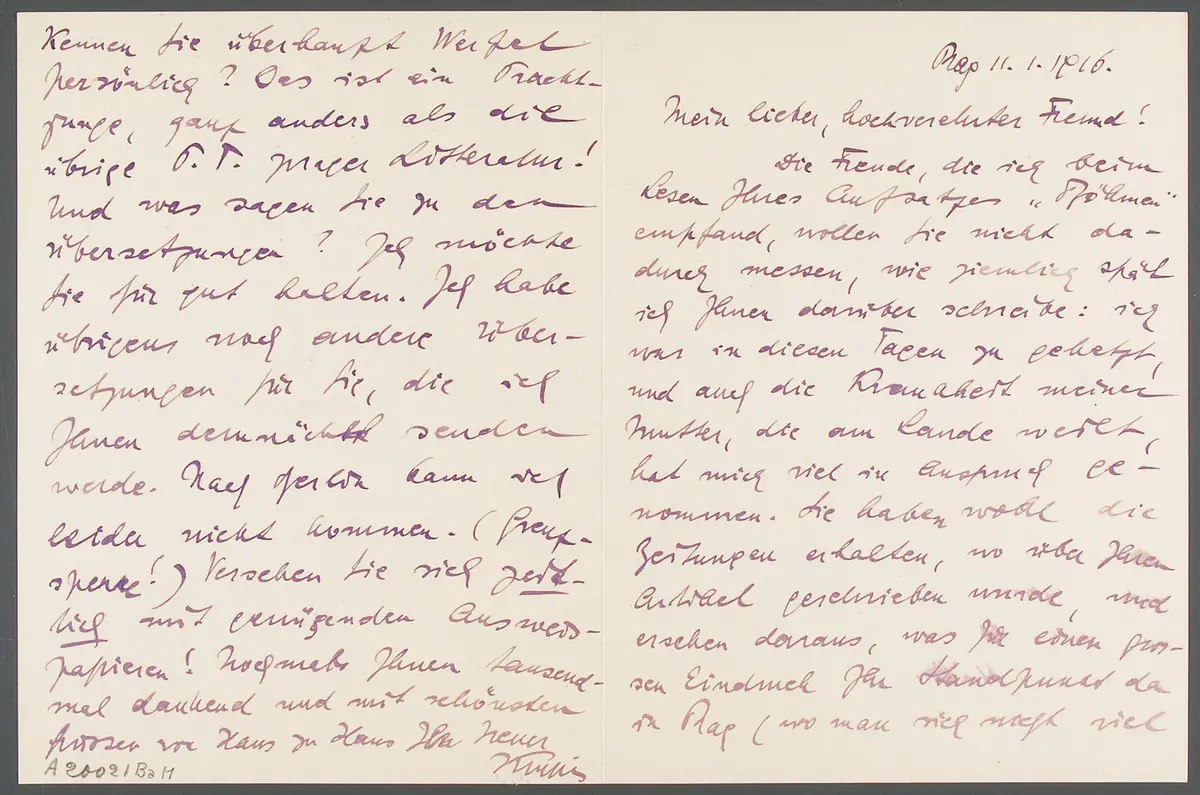 Kennen Sie überhaupt Werfel
persönlich? Das ist ein Pracht-
junge, ganz anders als die
übrige P. T. prager Litteratur!
Und was sagen Sie zu den
Übersetzungen? Ich möchte
sie für gut halten. Ich habe
übrigens noch andere Über-
setzungen für Sie, die ich
Ihnen demnächst senden
werde. Nach Berlin kann ich
leider nicht kommen. (Grenz-
sperre!) Versehen Sie sich zeit-
lich mit genügenden Ausweis-
papieren! Nochmals Ihnen tausend-
mal dankend und mit schönsten
Grüssen von Haus zu Haus Ihr treuer
A 20021 Ba H
Prag 11. 1. 1916.
Mein lieber, hochverehrter Freund!
Die Freude, die ich beim
Lesen Ihres Aufsatzes „Böhmen"
empfand, wollen Sie nicht da-
durch messen, wie ziemlich spät
ich Ihnen darüber schreibe: ich
war in diesen Tagen zu gehetzt,
und auch die Krankheit meiner
Mutter, die am Lande weilt,
hat mich viel in Anspruch ge-
nommen. Sie haben wohl die
Zeitungen erhalten, wo über Ihren
Artikel geschrieben wurde, und
ersehen daraus, was für einen gros-
sen Eindruck Ihr Standpunkt da
in Prag (wo man sich nicht viel